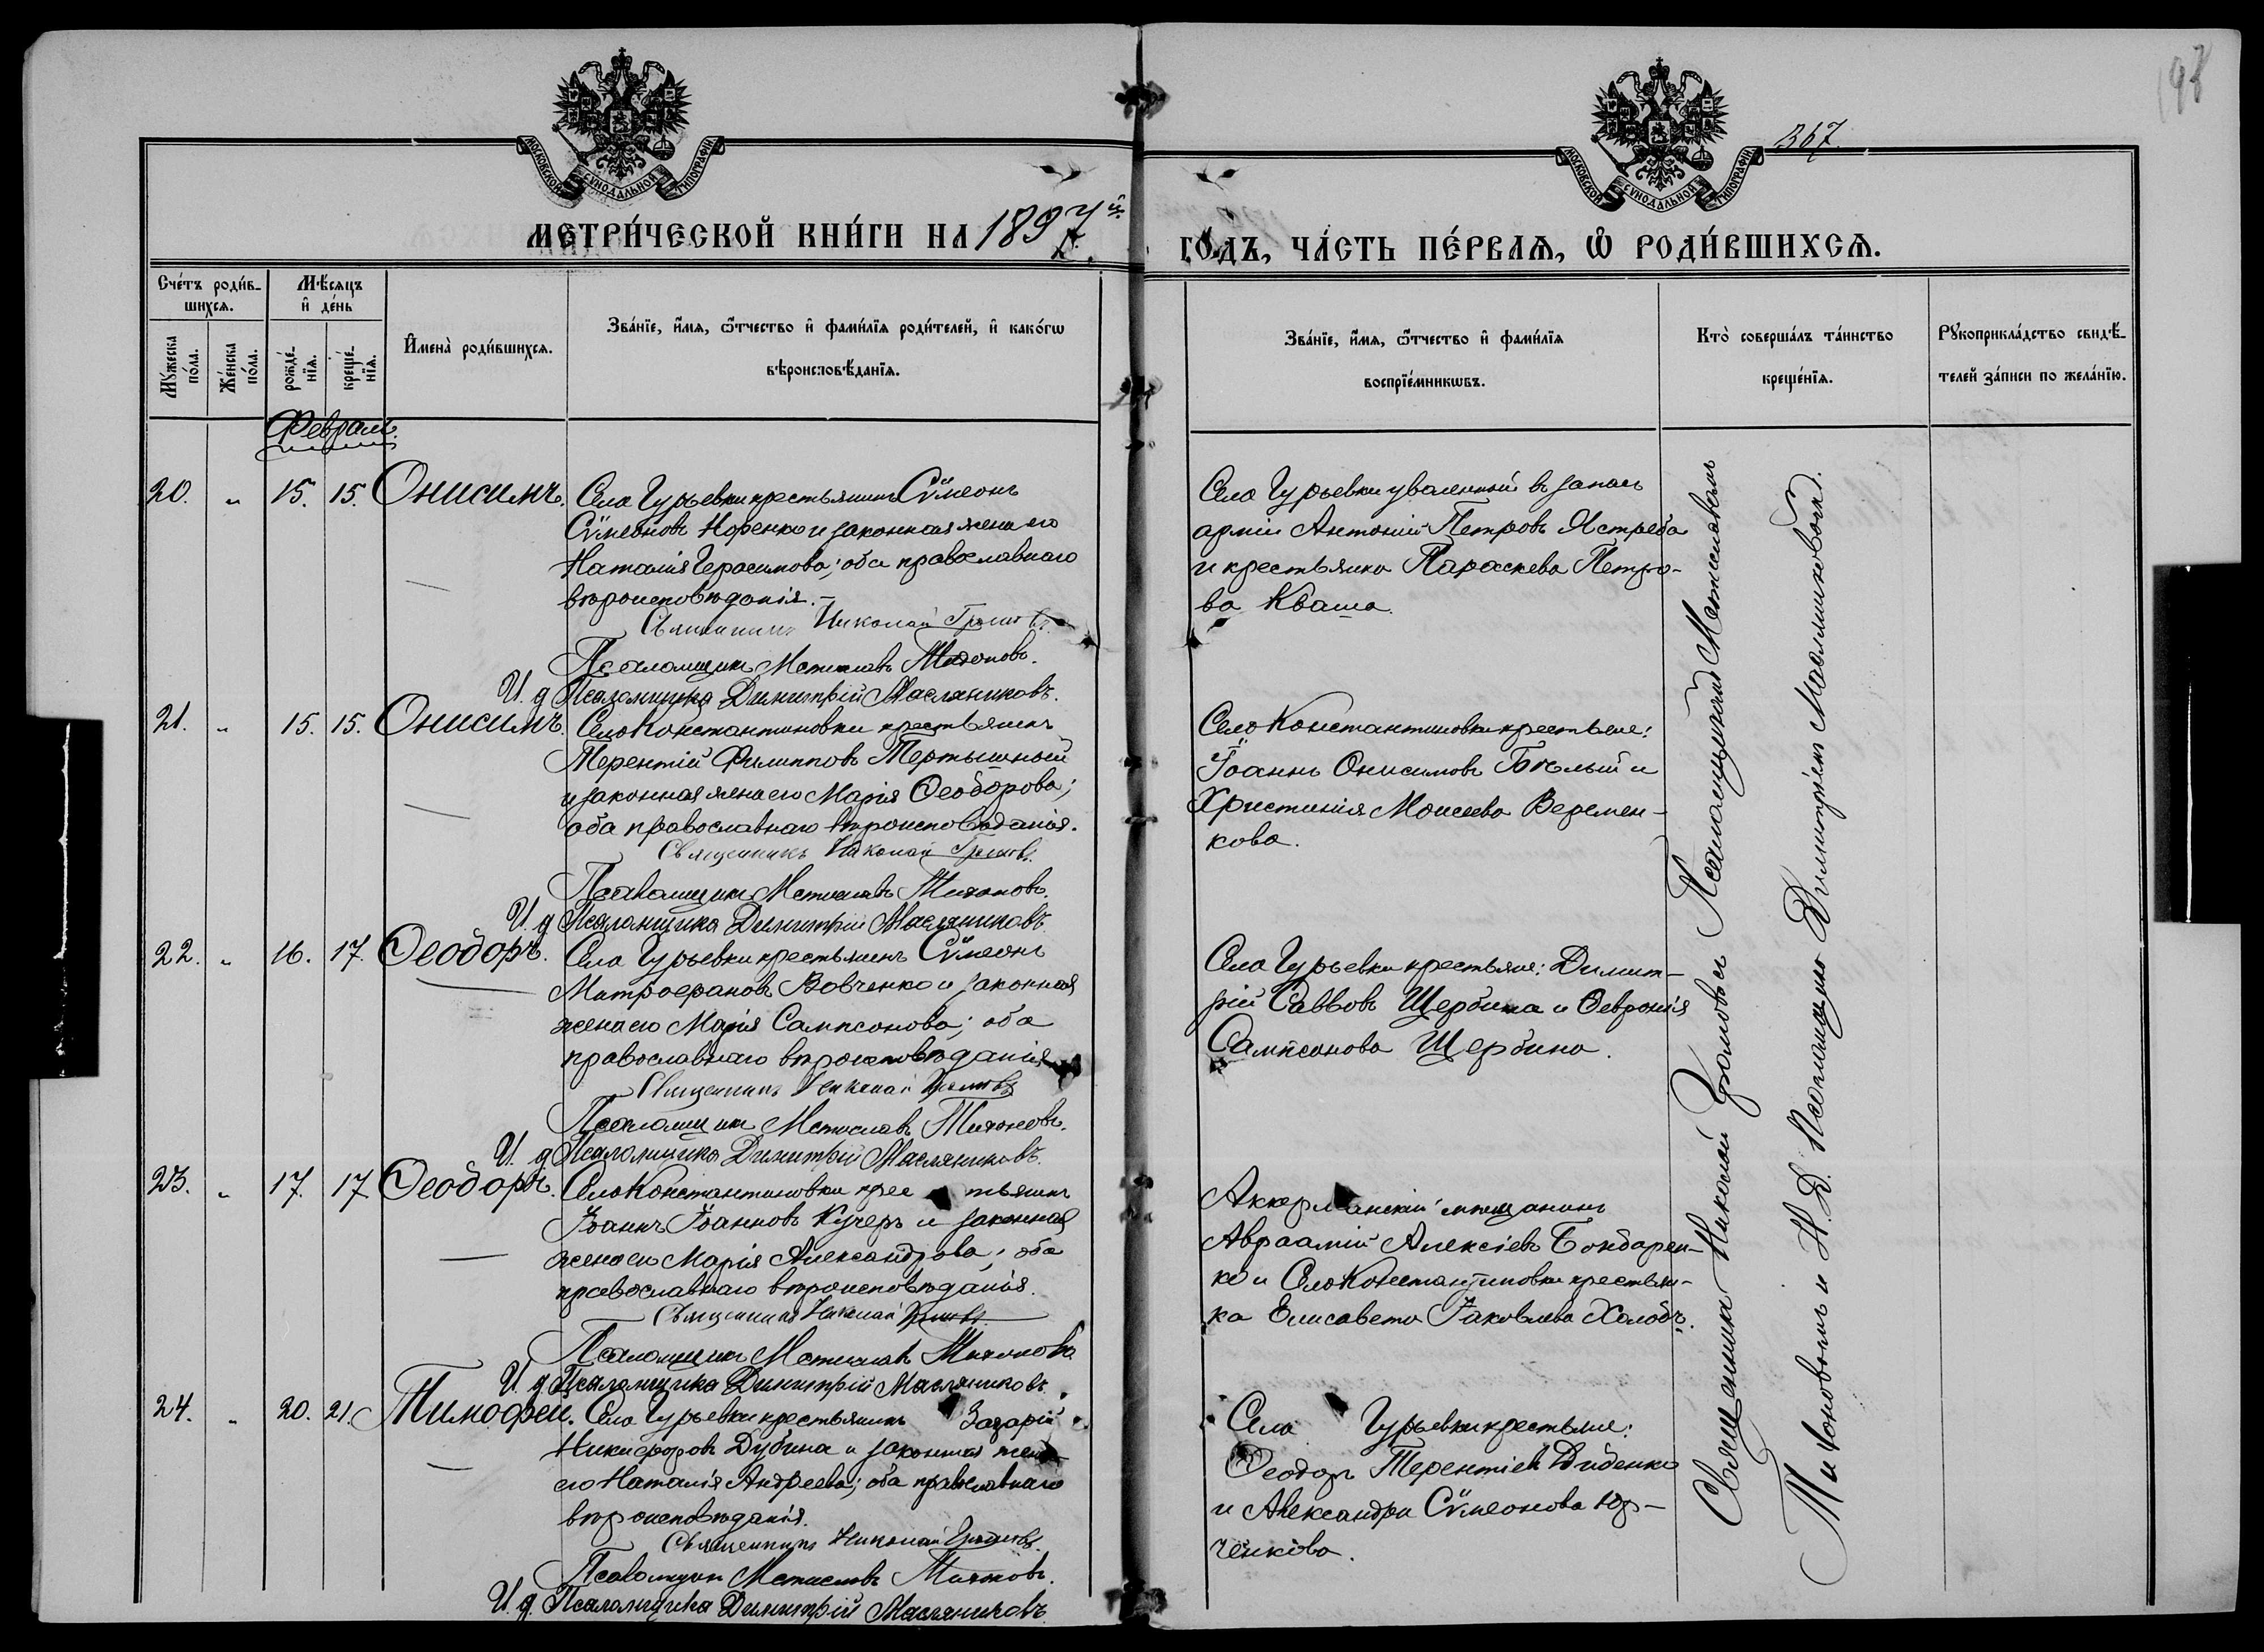 193
367.
МОСКОВСКОЙ СѴНОДАЛЬНОЙ ТИПОГРАФІИ
МОСКОВСКОЙ СѴНОДАЛЬНОЙ ТИПОГРАФІИ
МЕТРИ́ЧЕСКОЙ КНИ́ГИ НА 1897й г.
ГО́ДЪ, ЧА́СТЬ ПЕ́РВАѦ, Ѿ РОДИ́ВШИХСѦ.
Сче́тъ роди́в-
шихсѧ.
Му́жеска по́ла.
Же́нска по́ла.
Мѣ́сѧцъ
и де́нь
рожде́-
нїѧ.
креще́-
нїѧ.
Имена̀ роди́вшихсѧ.
Зва́нїе, и́мѧ, ѻ́тчество и фами́лїѧ роди́телей, и како́гѡ
вѣроисповѣ́данїѧ.
Зва́нїе, и́мѧ, ѻ́тчество и фами́лїѧ
воспрїе́мникѡвъ.
Кто̀ соверша́лъ та́инство
креще́нїѧ.
Рꙋкоприкла́дство свидѣ́-
телей за́писи по жела́нїю.
Февраль.
20. „ 15. 15. Онисимъ. Села Гурьевки крестьянинъ Сѵмеонъ
Сѵмеоновъ Норенко и законная жена его
Наталія Герасимова; оба православнаго
вѣроисповѣданія.
Священникъ Николай
Псаломщикъ Мстиславъ Тихоновъ.
И. д. Псаломщика Димитрій Масляниковъ.
Села Гурьевки уволенный въ запасъ
арміи Антоній Петровъ Ястреба
и крестьянка Параскева Петро-
ва Кваша.
21. „ 15. 15. Онисимъ. Села Константиновки крестьянинъ
Терентій Филипповъ Тертышный
и законная жена его Марія Ѳеодорова;
оба православнаго вѣроисповѣданія.
Священникъ Николай
Псаломщикъ Мстиславъ Тихоновъ.
И. д. Псаломщика Димитрій Масляниковъ.
Села Константиновки крестьяне:
Іоаннъ Онисимовъ Бѣлый и
Христинія Моисеева Веремен-
кова.
22. „ 16. 17. Ѳеодоръ. Села Гурьевки крестьянинъ Сѵмеонъ
Митрофановъ Вовченко и законная
жена его Марія Сампсонова; оба
православнаго вѣроисповѣданія.
Священникъ Николай
Псаломщикъ Мстиславъ Тихоновъ.
И. д. Псаломщика Димитрій Масляниковъ.
Села Гурьевки крестьяне: Димит-
рій Саввовъ Щербина и Ѳевронія
Сампсонова Щербина.
23. „ 17. 17. Ѳеодоръ. Села Константиновки крестьянинъ
Іоаннъ Іоанновъ Кучеръ и законная
жена его Марія Александрова; оба
православнаго вѣроисповѣданія.
Священникъ Николай
Псаломщикъ Мстиславъ Тихоновъ
И. д. Псаломщика Димитрій Масляниковъ.
Аккерманскій мѣщанинъ
Авраамій Алексіевъ Бондарен-
ко и Села Константиновки крестьян-
ка Елисавета Іаковлева Холодъ.
24. „ 20. 21. Тимофей. Села Гурьевки крестьянинъ Захарій
Никифоровъ Дубина и законная жена
его Наталія Андреева; оба православнаго
вѣроисповѣданія.
Священникъ Николай
Псаломщикъ Мстиславъ Тихоновъ.
И. д. Псаломщика Димитрій Масляниковъ.
Села Гурьевки крестьяне:
Ѳеодоръ Терентіевъ Диденко
и Александра Сѵмеонова Юр-
ченкова.
Священникъ Николай съ Псаломщикомъ Мстиславомъ
Тихоновымъ и И. Д. Псаломщика Димитріемъ Масляниковымъ.